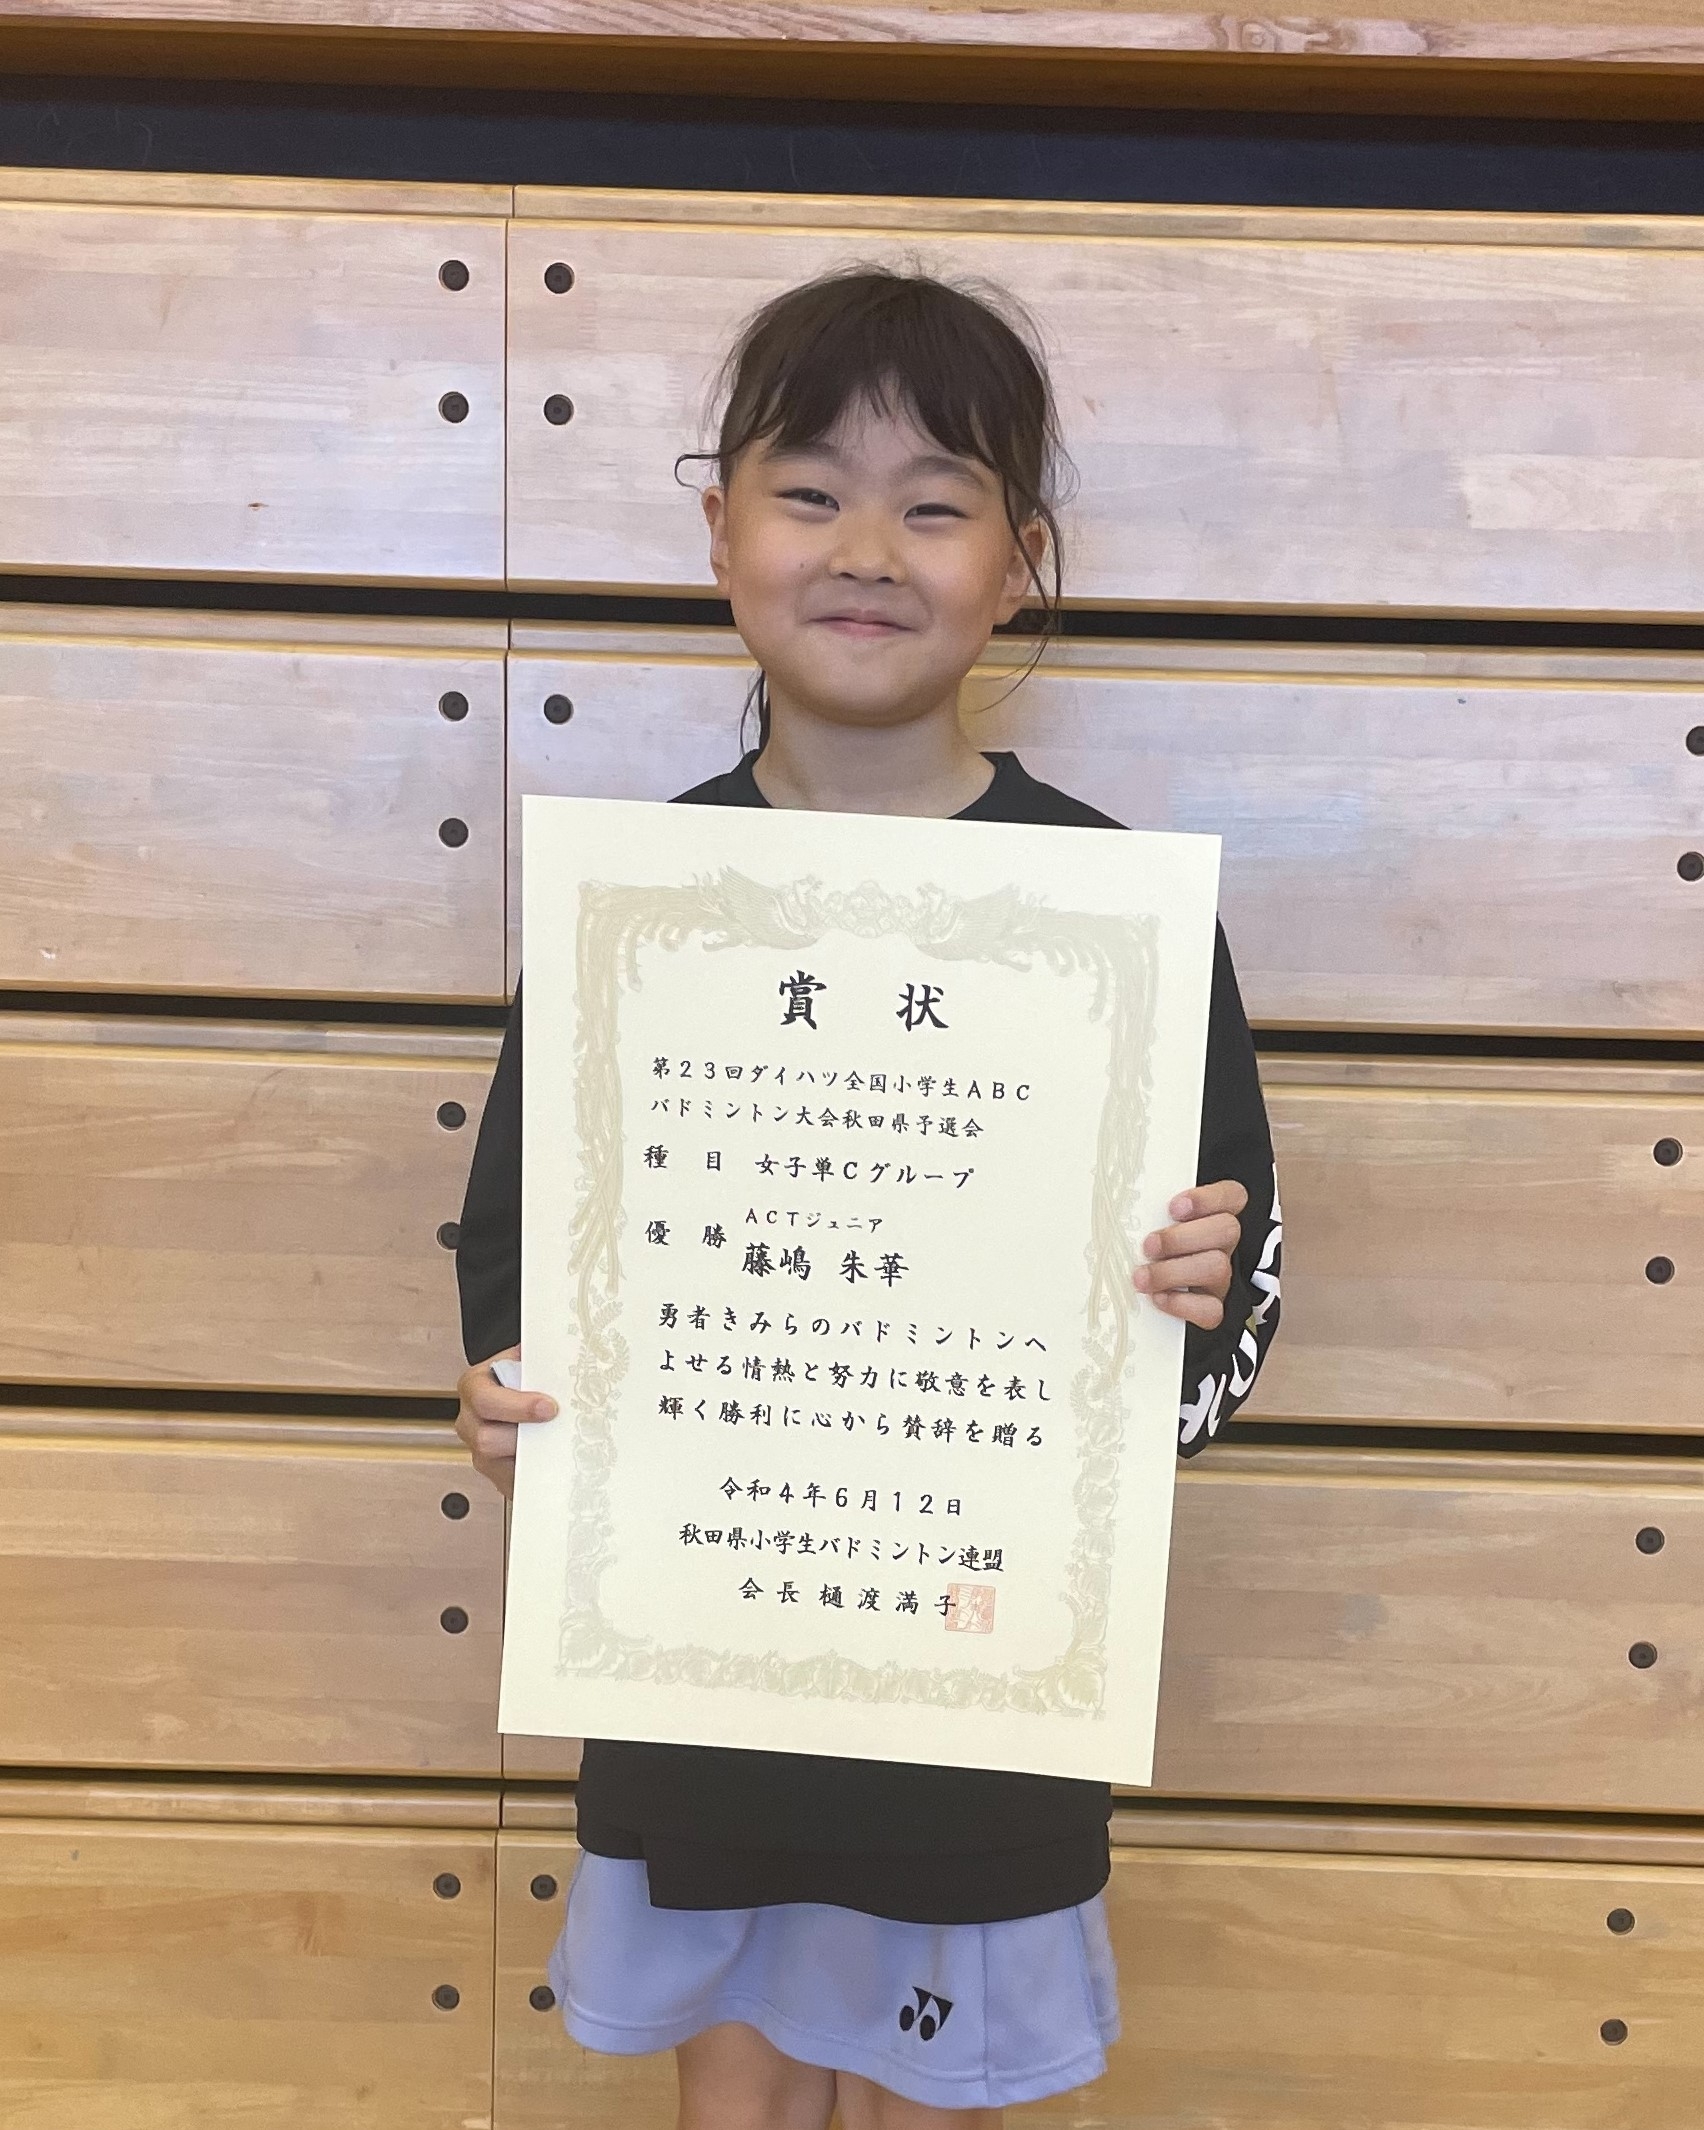 賞状
第23回ダイハツ全国小学生ABC
バドミントン大会秋田県予選会
種目 女子単Cグループ
ACTジュニア
優勝 藤嶋 朱華
勇者きみらのバドミントンへ
よせる情熱と努力に敬意を表し
輝く勝利に心から賛辞を贈る
令和4年6月12日
秋田県小学生バドミントン連盟
会長 樋渡満子